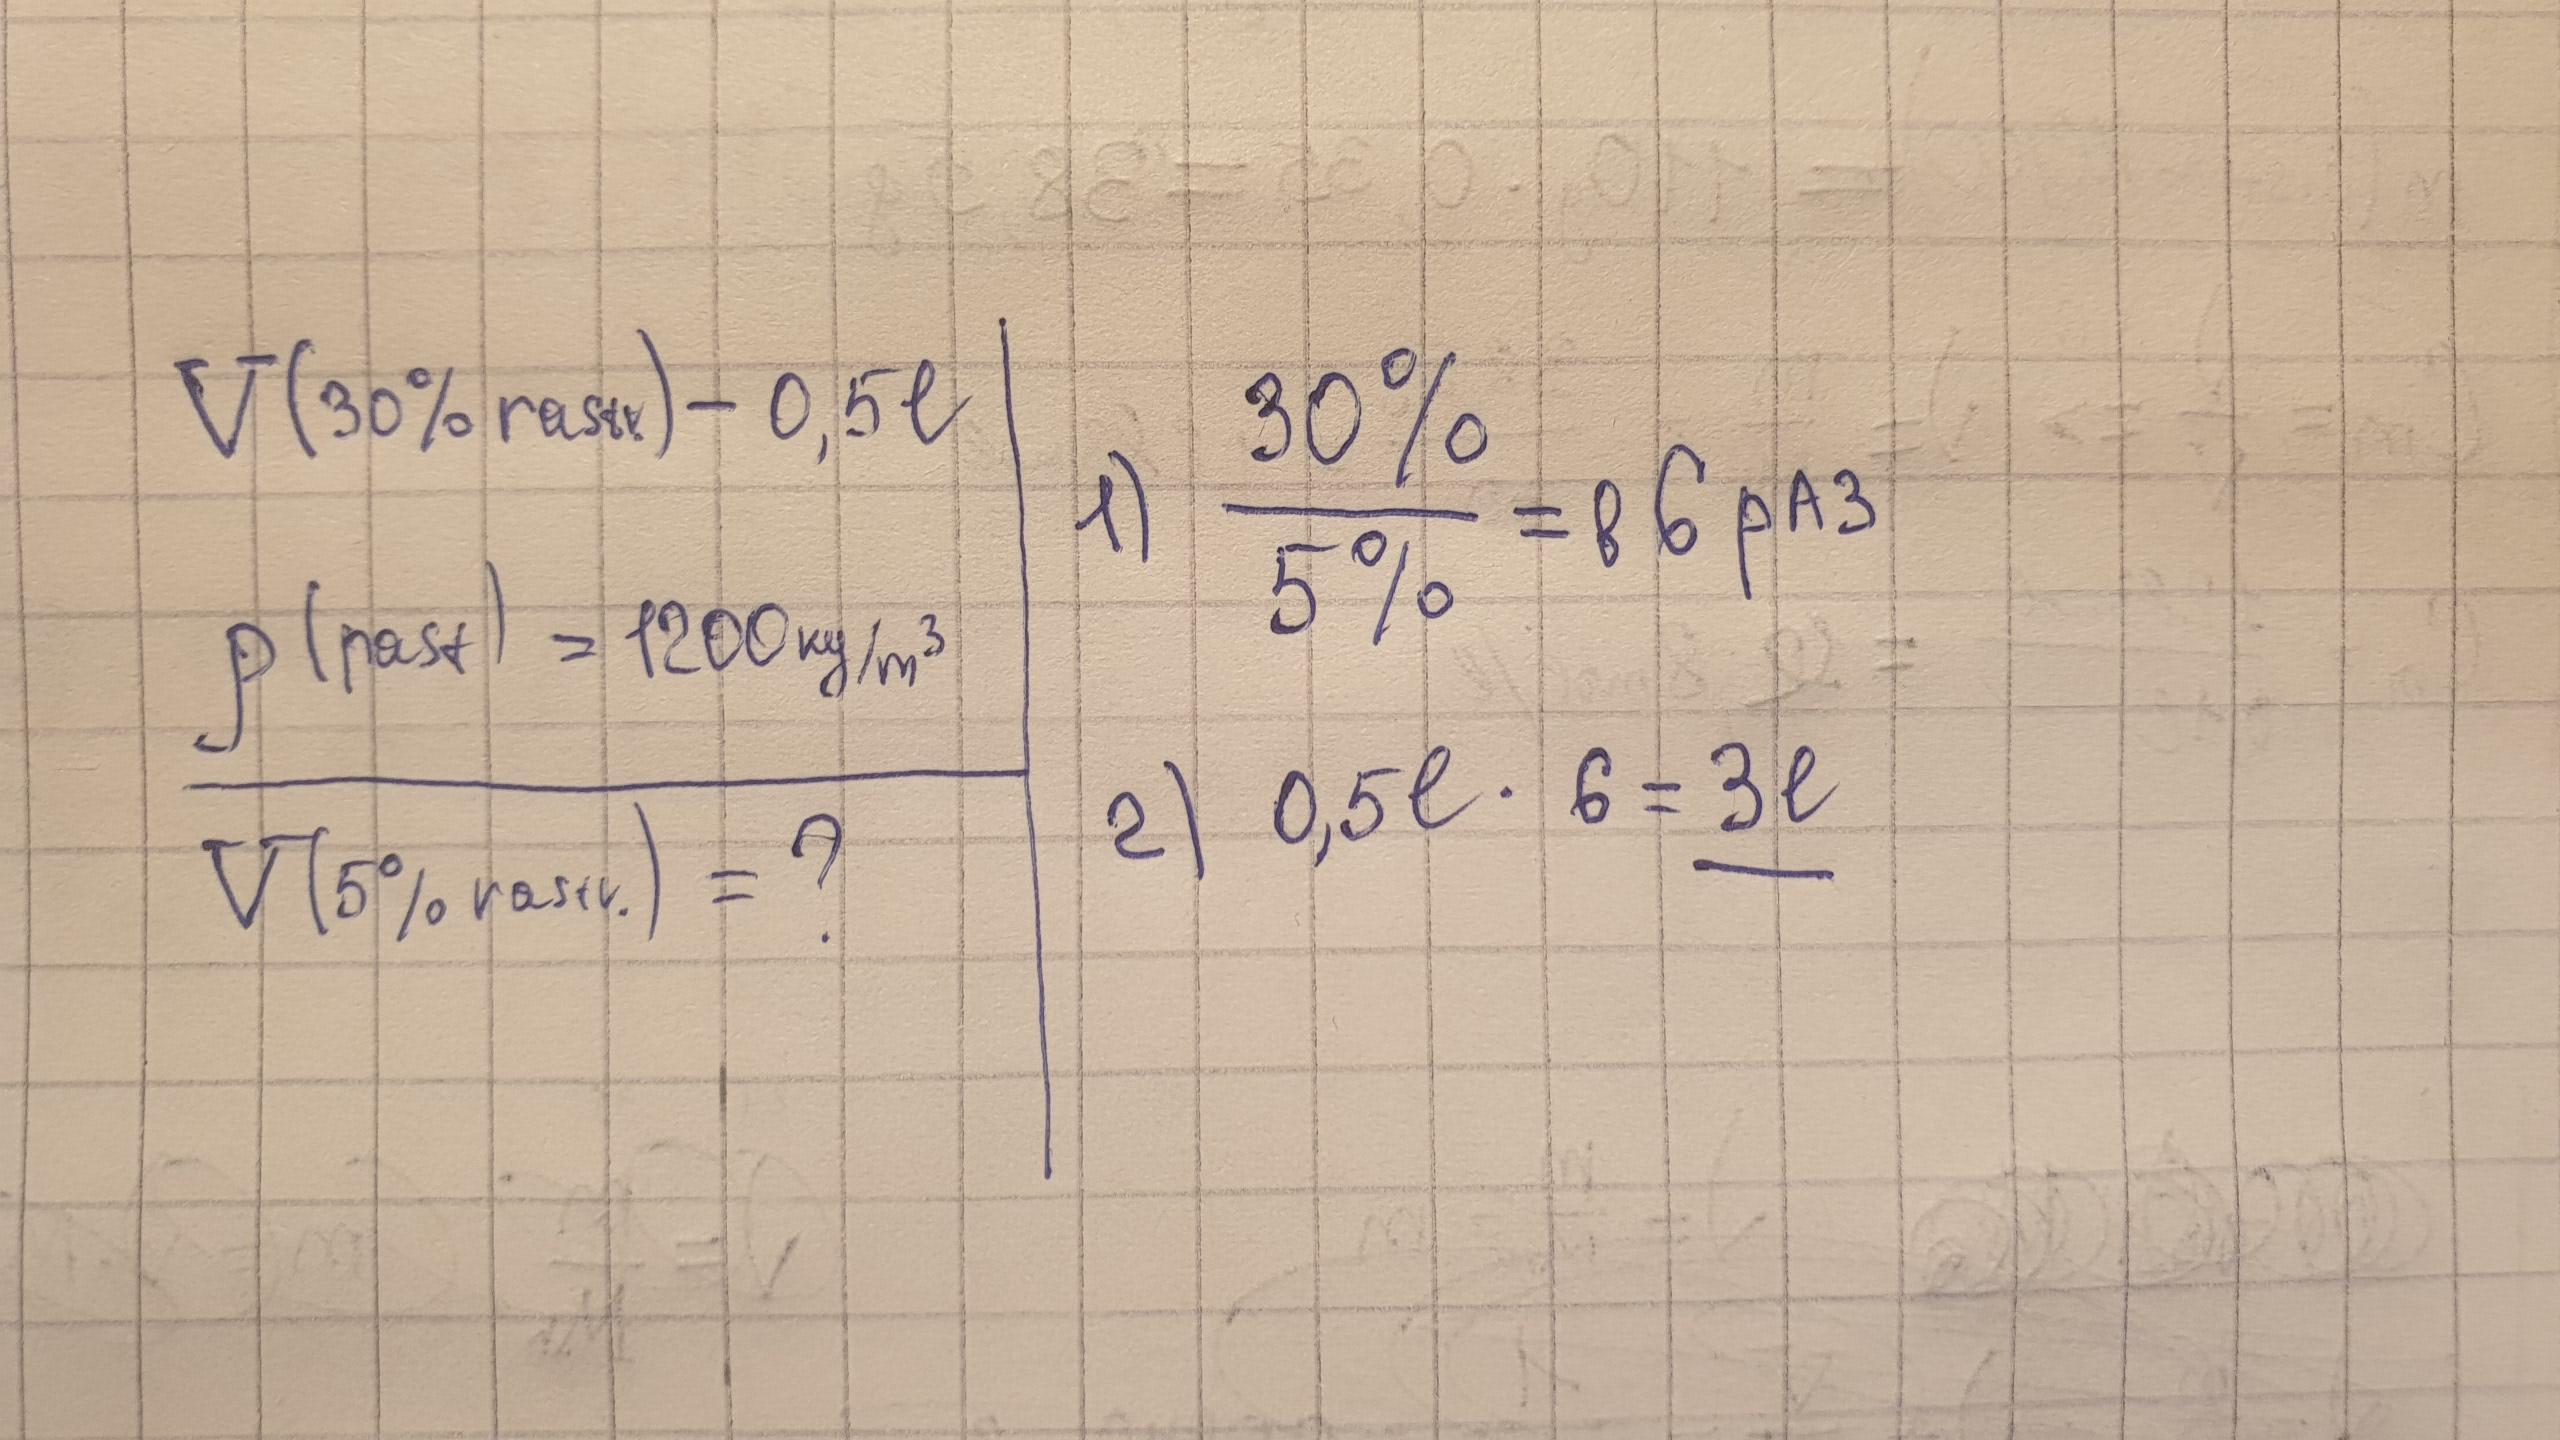 V(30% rastv.) - 0,5l
ρ(rast) = 1200 kg/m³
V(5% rastv.) = ?
1) 30% / 5% = в 6 рАЗ
2) 0,5l · 6 = 3l